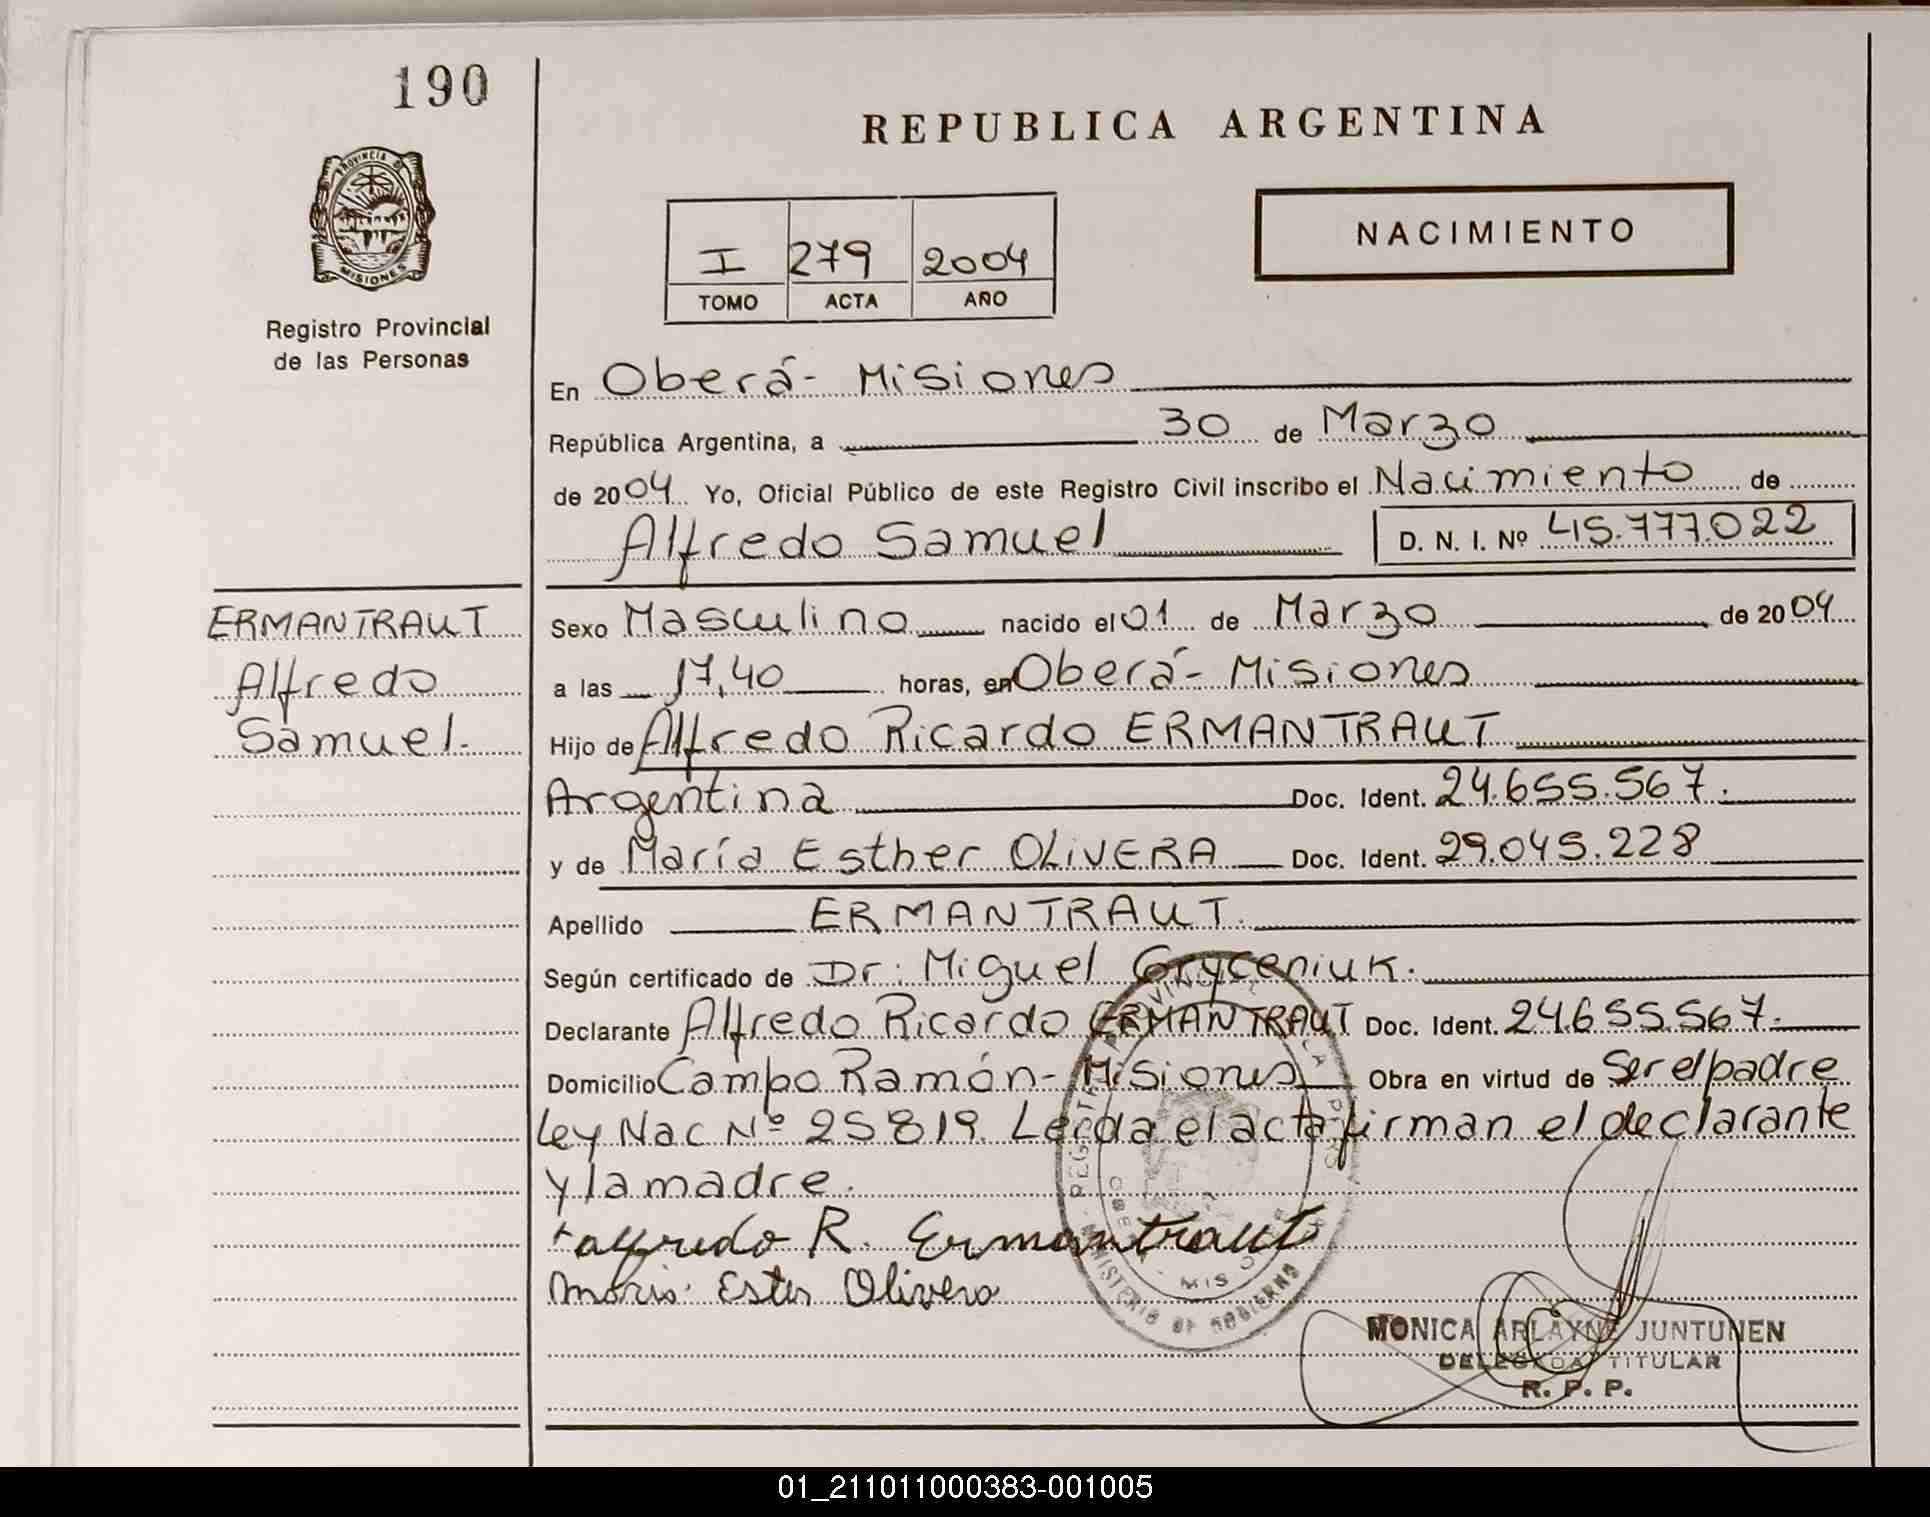 190
PROVINCIA DE
MISIONES
Registro Provincial
de las Personas
REPUBLICA ARGENTINA
NACIMIENTO
I 279 2004
TOMO ACTA AÑO
En Oberá- Misiones
República Argentina, a 30 de Marzo
de 2004 Yo, Oficial Público de este Registro Civil inscribo el Nacimiento de
Alfredo Samuel D. N. I. Nº 45.777.022
ERMANTRAUT
Alfredo
Samuel.
Sexo Masculino nacido el 01 de Marzo de 2004
a las 17,40 horas, en Oberá- Misiones
Hijo de Alfredo Ricardo ERMANTRAUT
Argentina Doc. Ident. 24.655.567.
y de María Esther OLIVERA Doc. Ident. 29.045.228
Apellido ERMANTRAUT.
Según certificado de Dr: Miguel Gryceniuk.
Declarante Alfredo Ricardo ERMANTRAUT Doc. Ident. 24.655.567.
Domicilio Campo Ramón- Misiones Obra en virtud de Ser el padre
Ley Nac Nº 25819. Leída el acta firman el declarante
y la madre.
alfredo R. Ermantraut
Maria Ester Olivera
MINISTERIO DE GOBIERNO
MONICA ARLAYNE JUNTUNEN
DELEGADA TITULAR
R. P. P.
01_211011000383-001005